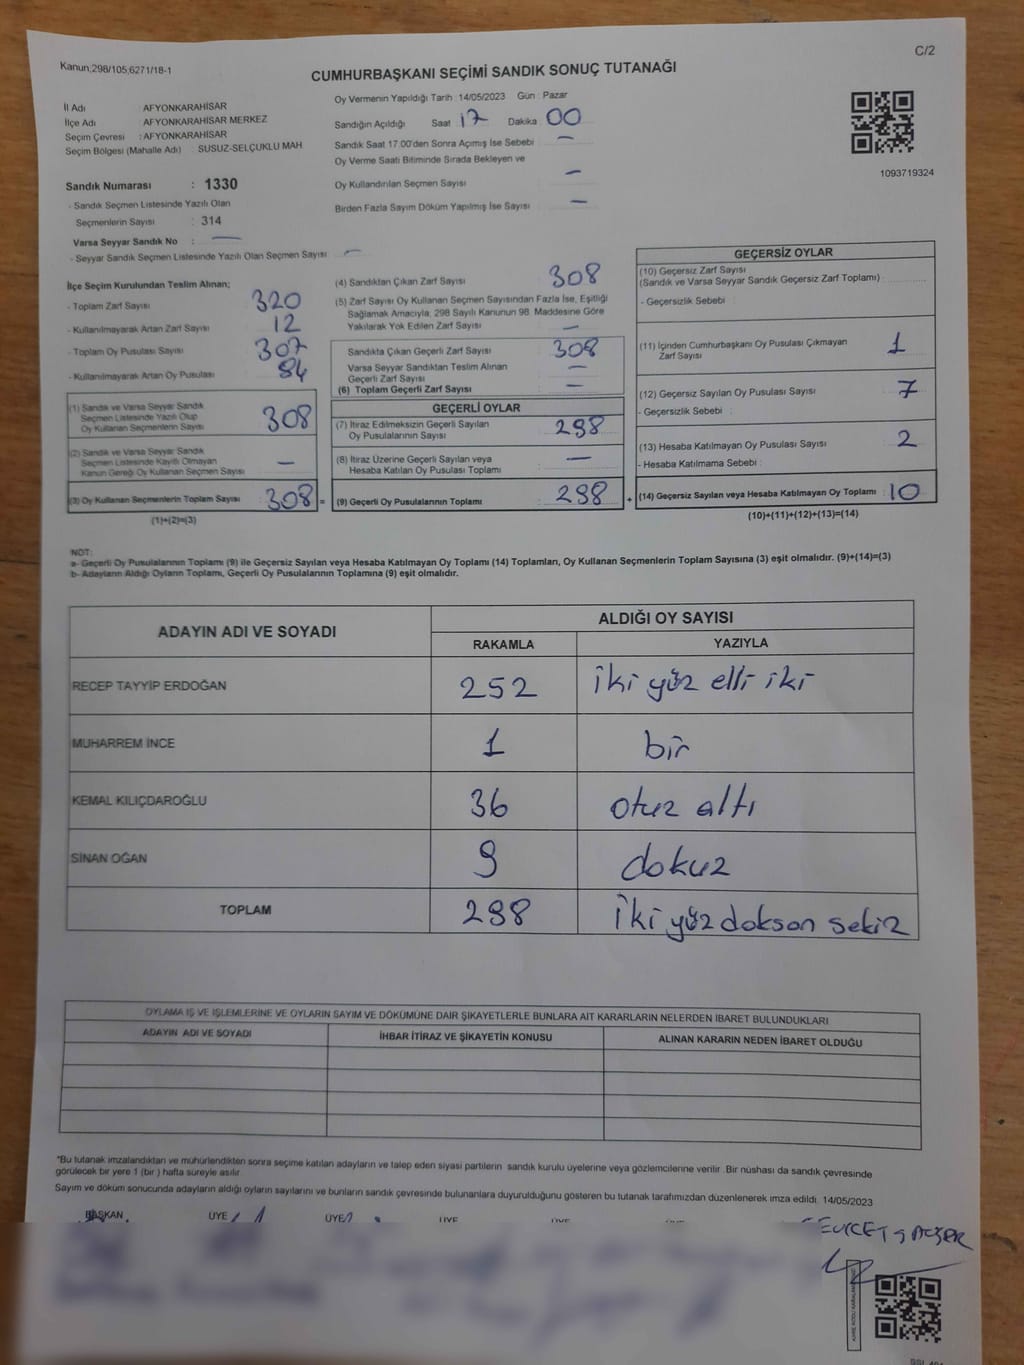 C/2
Kanun;298/105,6271/18-1
CUMHURBAŞKANI SEÇİMİ SANDIK SONUÇ TUTANAĞI
İl Adı : AFYONKARAHİSAR
İlçe Adı : AFYONKARAHİSAR MERKEZ
Seçim Çevresi : AFYONKARAHİSAR
Seçim Bölgesi (Mahalle Adı) : SUSUZ-SELÇUKLU MAH
Oy Vermenin Yapıldığı Tarih : 14/05/2023 Gün : Pazar
Sandığın Açıldığı Saat : 17 Dakika : 00
Sandık Saat 17.00'den Sonra Açımış İse Sebebi : —
Oy Verme Saati Bitiminde Sırada Bekleyen ve
Oy Kullandırılan Seçmen Sayısı : —
Birden Fazla Sayım Döküm Yapılmış İse Sayısı : —
1093719324
Sandık Numarası : 1330
- Sandık Seçmen Listesinde Yazılı Olan
Seçmenlerin Sayısı : 314
Varsa Seyyar Sandık No : —
- Seyyar Sandık Seçmen Listesinde Yazılı Olan Seçmen Sayısı : —
İlçe Seçim Kurulundan Teslim Alınan;
- Toplam Zarf Sayısı : 320
- Kullanılmayarak Artan Zarf Sayısı : 12
- Toplam Oy Pusulası Sayısı : 307
- Kullanılmayarak Artan Oy Pusulası : 84
(1) Sandık ve Varsa Seyyar Sandık
Seçmen Listesinde Yazılı Olup
Oy Kullanan Seçmenlerin Sayısı : 308
(2) Sandık ve Varsa Seyyar Sandık
Seçmen Listesinde Kayıtlı Olmayan
Kanun Gereği Oy Kullanan Seçmen Sayısı : —
(3) Oy Kullanan Seçmenlerin Toplam Sayısı : 308 =
(1)+(2)=(3)
(4) Sandıktan Çıkan Zarf Sayısı : 308
(5) Zarf Sayısı Oy Kullanan Seçmen Sayısından Fazla İse, Eşitliği
Sağlamak Amacıyla, 298 Sayılı Kanunun 98. Maddesine Göre
Yakılarak Yok Edilen Zarf Sayısı : —
Sandıkta Çıkan Geçerli Zarf Sayısı : 308
Varsa Seyyar Sandıktan Teslim Alınan
Geçerli Zarf Sayısı : —
(6) Toplam Geçerli Zarf Sayısı : —
GEÇERLİ OYLAR
(7) İtiraz Edilmeksizin Geçerli Sayılan
Oy Pusulalarının Sayısı : 298
(8) İtiraz Üzerine Geçerli Sayılan veya
Hesaba Katılan Oy Pusulası Toplamı : —
(9) Geçerli Oy Pusulalarının Toplamı : 298 +
GEÇERSİZ OYLAR
(10) Geçersiz Zarf Sayısı
(Sandık ve Varsa Seyyar Sandık Geçersiz Zarf Toplamı) :
- Geçersizlik Sebebi :
(11) İçinden Cumhurbaşkanı Oy Pusulası Çıkmayan
Zarf Sayısı : 1
(12) Geçersiz Sayılan Oy Pusulası Sayısı : 7
- Geçersizlik Sebebi :
(13) Hesaba Katılmayan Oy Pusulası Sayısı : 2
- Hesaba Katılmama Sebebi :
(14) Geçersiz Sayılan veya Hesaba Katılmayan Oy Toplamı : 10
(10)+(11)+(12)+(13)=(14)
NOT:
a- Geçerli Oy Pusulalarının Toplamı (9) ile Geçersiz Sayılan veya Hesaba Katılmayan Oy Toplamı (14) Toplamları, Oy Kullanan Seçmenlerin Toplam Sayısına (3) eşit olmalıdır. (9)+(14)=(3)
b- Adayların Aldığı Oyların Toplamı, Geçerli Oy Pusulalarının Toplamına (9) eşit olmalıdır.
ADAYIN ADI VE SOYADI
ALDIĞI OY SAYISI
RAKAMLA YAZIYLA
RECEP TAYYİP ERDOĞAN 252 iki yüz elli iki
MUHARREM İNCE 1 bir
KEMAL KILIÇDAROĞLU 36 otuz altı
SİNAN OĞAN 9 dokuz
TOPLAM 298 iki yüz doksan sekiz
OYLAMA İŞ VE İŞLEMLERİNE VE OYLARIN SAYIM VE DÖKÜMÜNE DAİR ŞİKAYETLERLE BUNLARA AİT KARARLARIN NELERDEN İBARET BULUNDUKLARI
ADAYIN ADI VE SOYADI İHBAR İTİRAZ VE ŞİKAYETİN KONUSU ALINAN KARARIN NEDEN İBARET OLDUĞU
*Bu tutanak imzalandıktan ve mühürlendikten sonra seçime katılan adayların ve talep eden siyasi partilerin sandık kurulu üyelerine veya gözlemcilerine verilir. Bir nüshası da sandık çevresinde
görülecek bir yere 1 (bir ) hafta süreyle asılır.
Sayım ve döküm sonucunda adayların aldığı oyların sayılarını ve bunların sandık çevresinde bulunanlara duyurulduğunu gösteren bu tutanak tarafımızdan düzenlenerek imza edildi. 14/05/2023
BAŞKAN ÜYE ÜYE ÜYE ÜYE